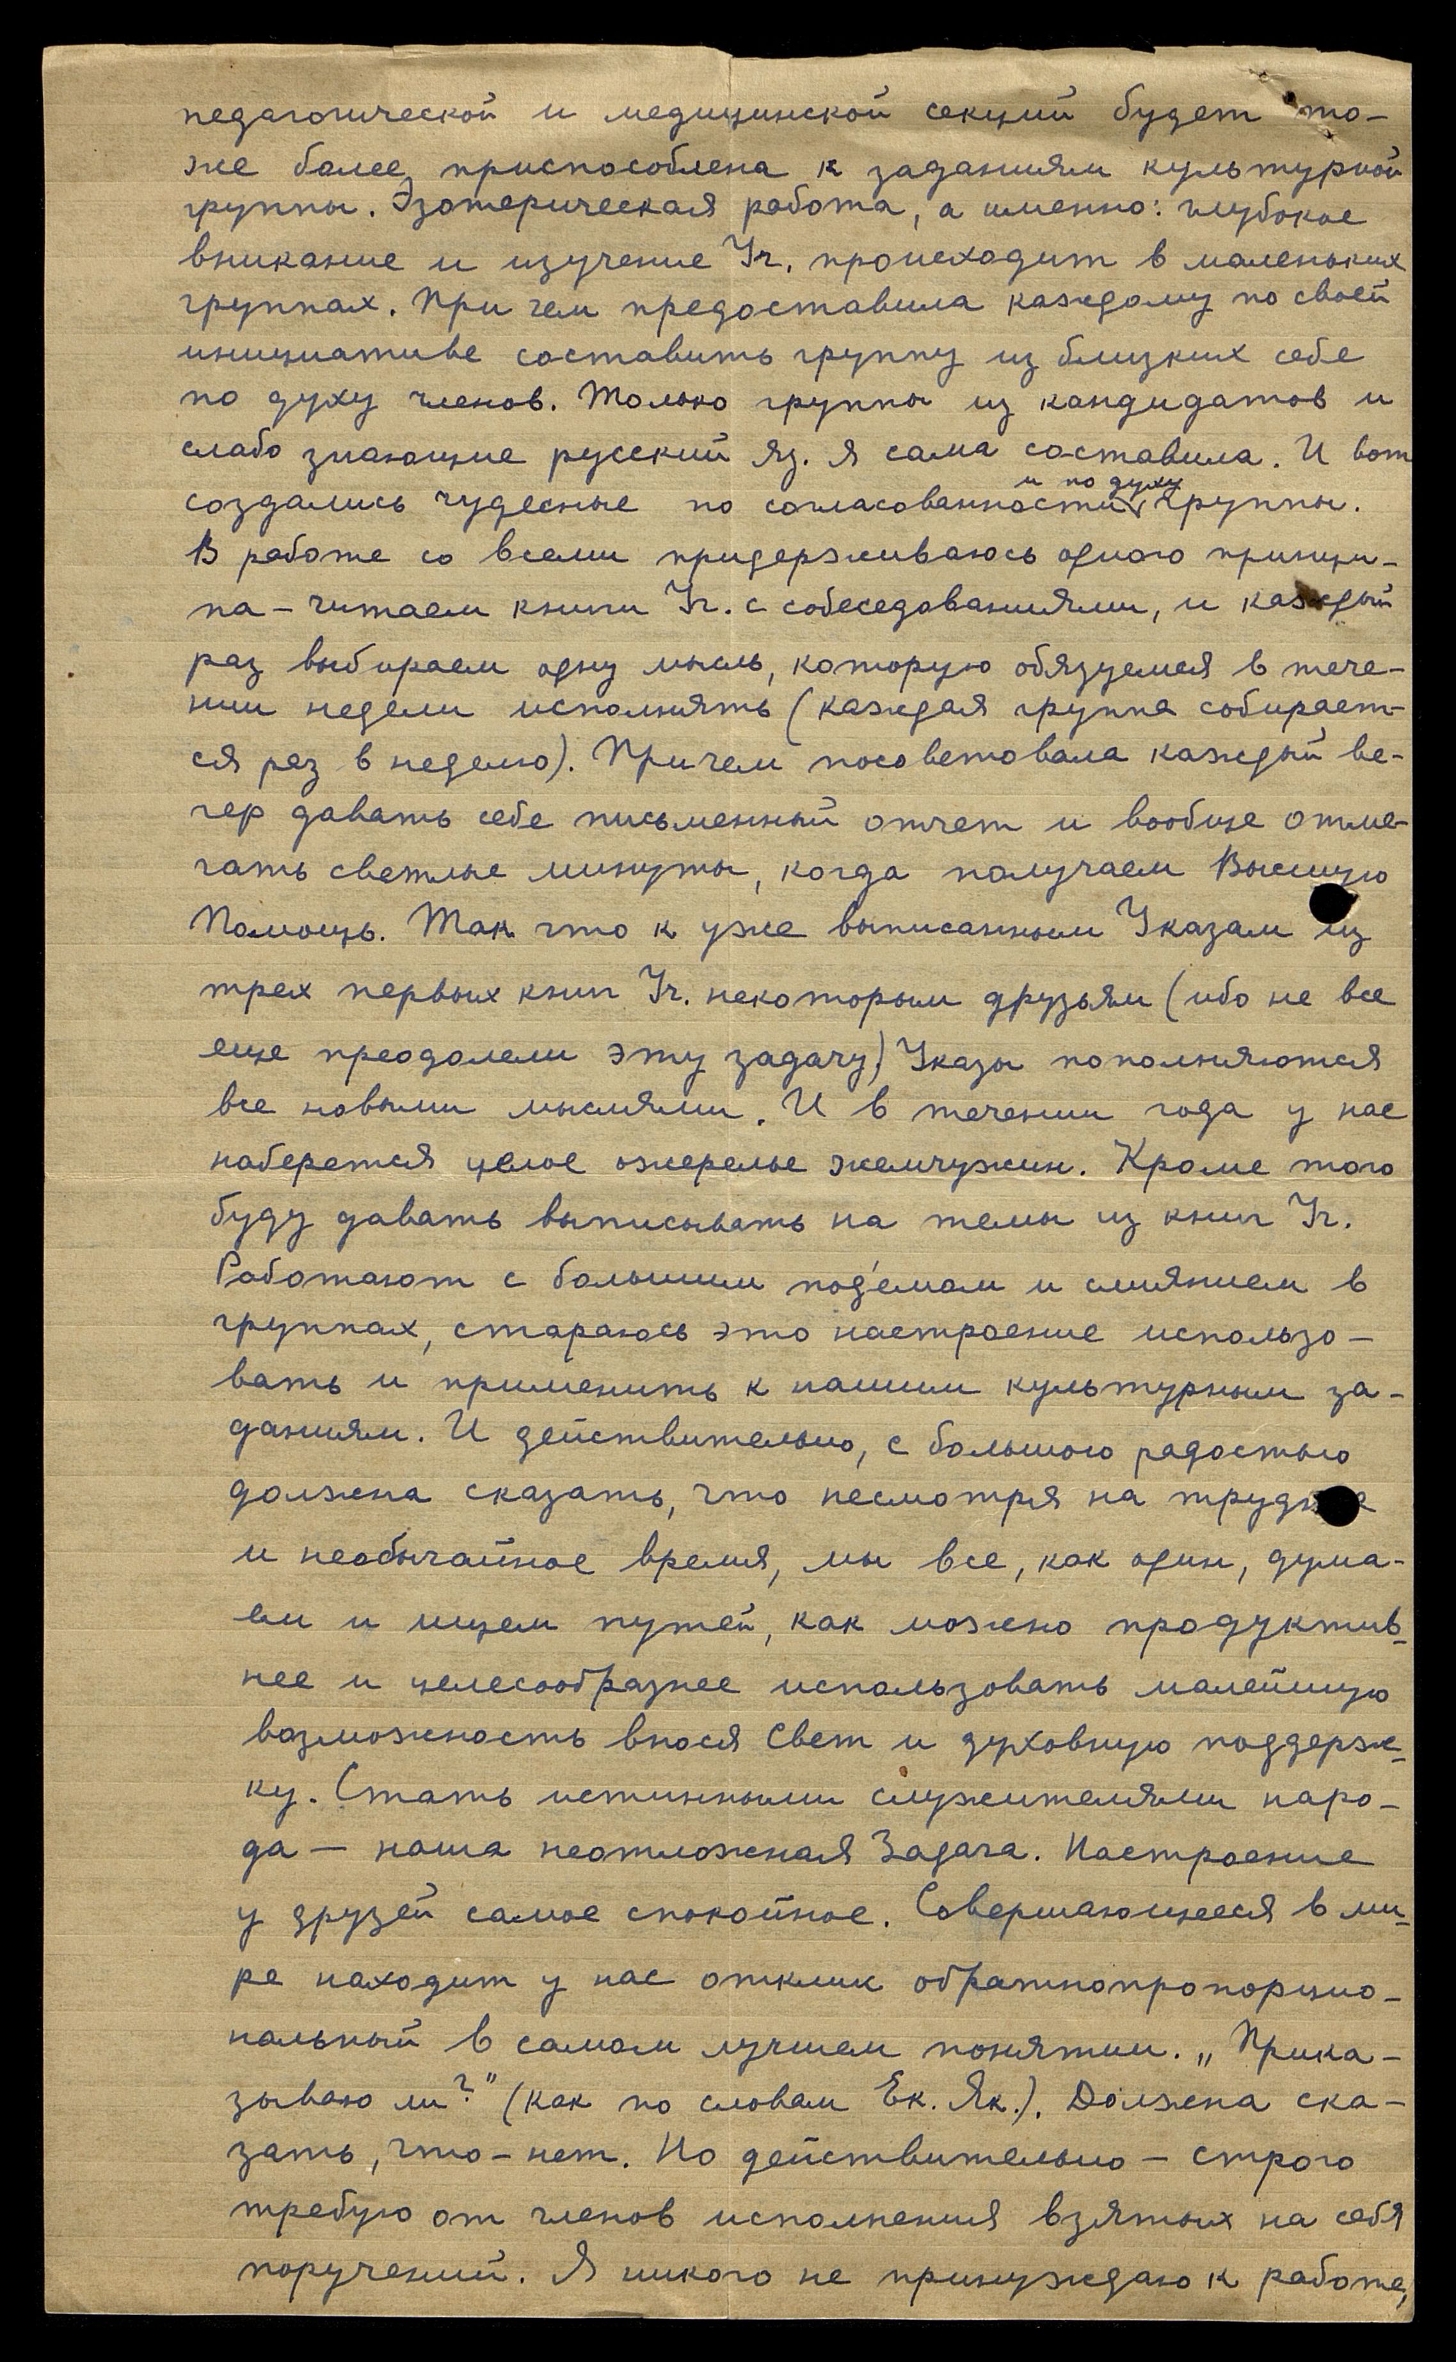 педагогической и медицинской секций будет то-
же более приспособлена к заданиям культурной
группы. Эзотерическая работа, а именно: глубокое
вникание и изучение Уч. происходит в маленьких
группах. При чем предоставила каждому по своей
инициативе составить группу из близких себе
по духу членов. Только группы из кандидатов и
слабо знающие русский яз. я сама составила. И вот
создались чудесные по согласованности и по духу группы.
В работе со всеми придерживаюсь одного принци-
па – читаем книги Уч. с собеседованиями, и каждый
раз выбираем одну мысль, которую обязуемся в тече-
нии недели исполнять (каждая группа собирает-
ся раз в неделю). Причем посоветовала каждый ве-
чер давать себе письменный отчет и вообще отме-
чать светлые минуты, когда получаем Высшую
Помощь. Так что к уже выписанным Указам из
трех первых книг Уч. некоторым друзьям (ибо не все
еще преодолели эту задачу) Указы пополняются
все новыми мыслями. И в течении года у нас
наберется целое ожерелье жемчужин. Кроме того
буду давать выписывать на темы из книг Уч.
Работают с большим под'емом и слиянием в
группах, стараюсь это настроение использо-
вать и применить к нашим культурным за-
даниям. И действительно, с большою радостью
должна сказать, что несмотря на трудное
и необычайное время, мы все, как один, дума-
ем и ищем путей, как можно продуктив-
нее и целесообразнее использовать малейшую
возможность внося Свет и духовную поддерж-
ку. Стать истинными служителями наро-
да – наша неотложная Задача. Настроение
у друзей самое спокойное. Совершающееся в ми-
ре находит у нас отклик обратнопропорцио-
нальный в самом лучшем понятии. „Прика-
зываю ли?" (как по словам Ек. Як.). Должна ска-
зать, что – нет. Но действительно – строго
требую от членов исполнения взятых на себя
поручений. Я никого не принуждаю к работе,